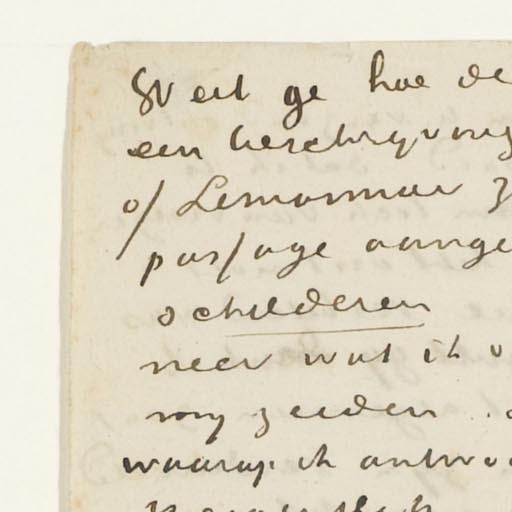 Weet ge hoe de
een beschrijving
of Lemonnier z
passage aange
schilderen
neer wat ik v
my zeiden.
waarop ik antwo